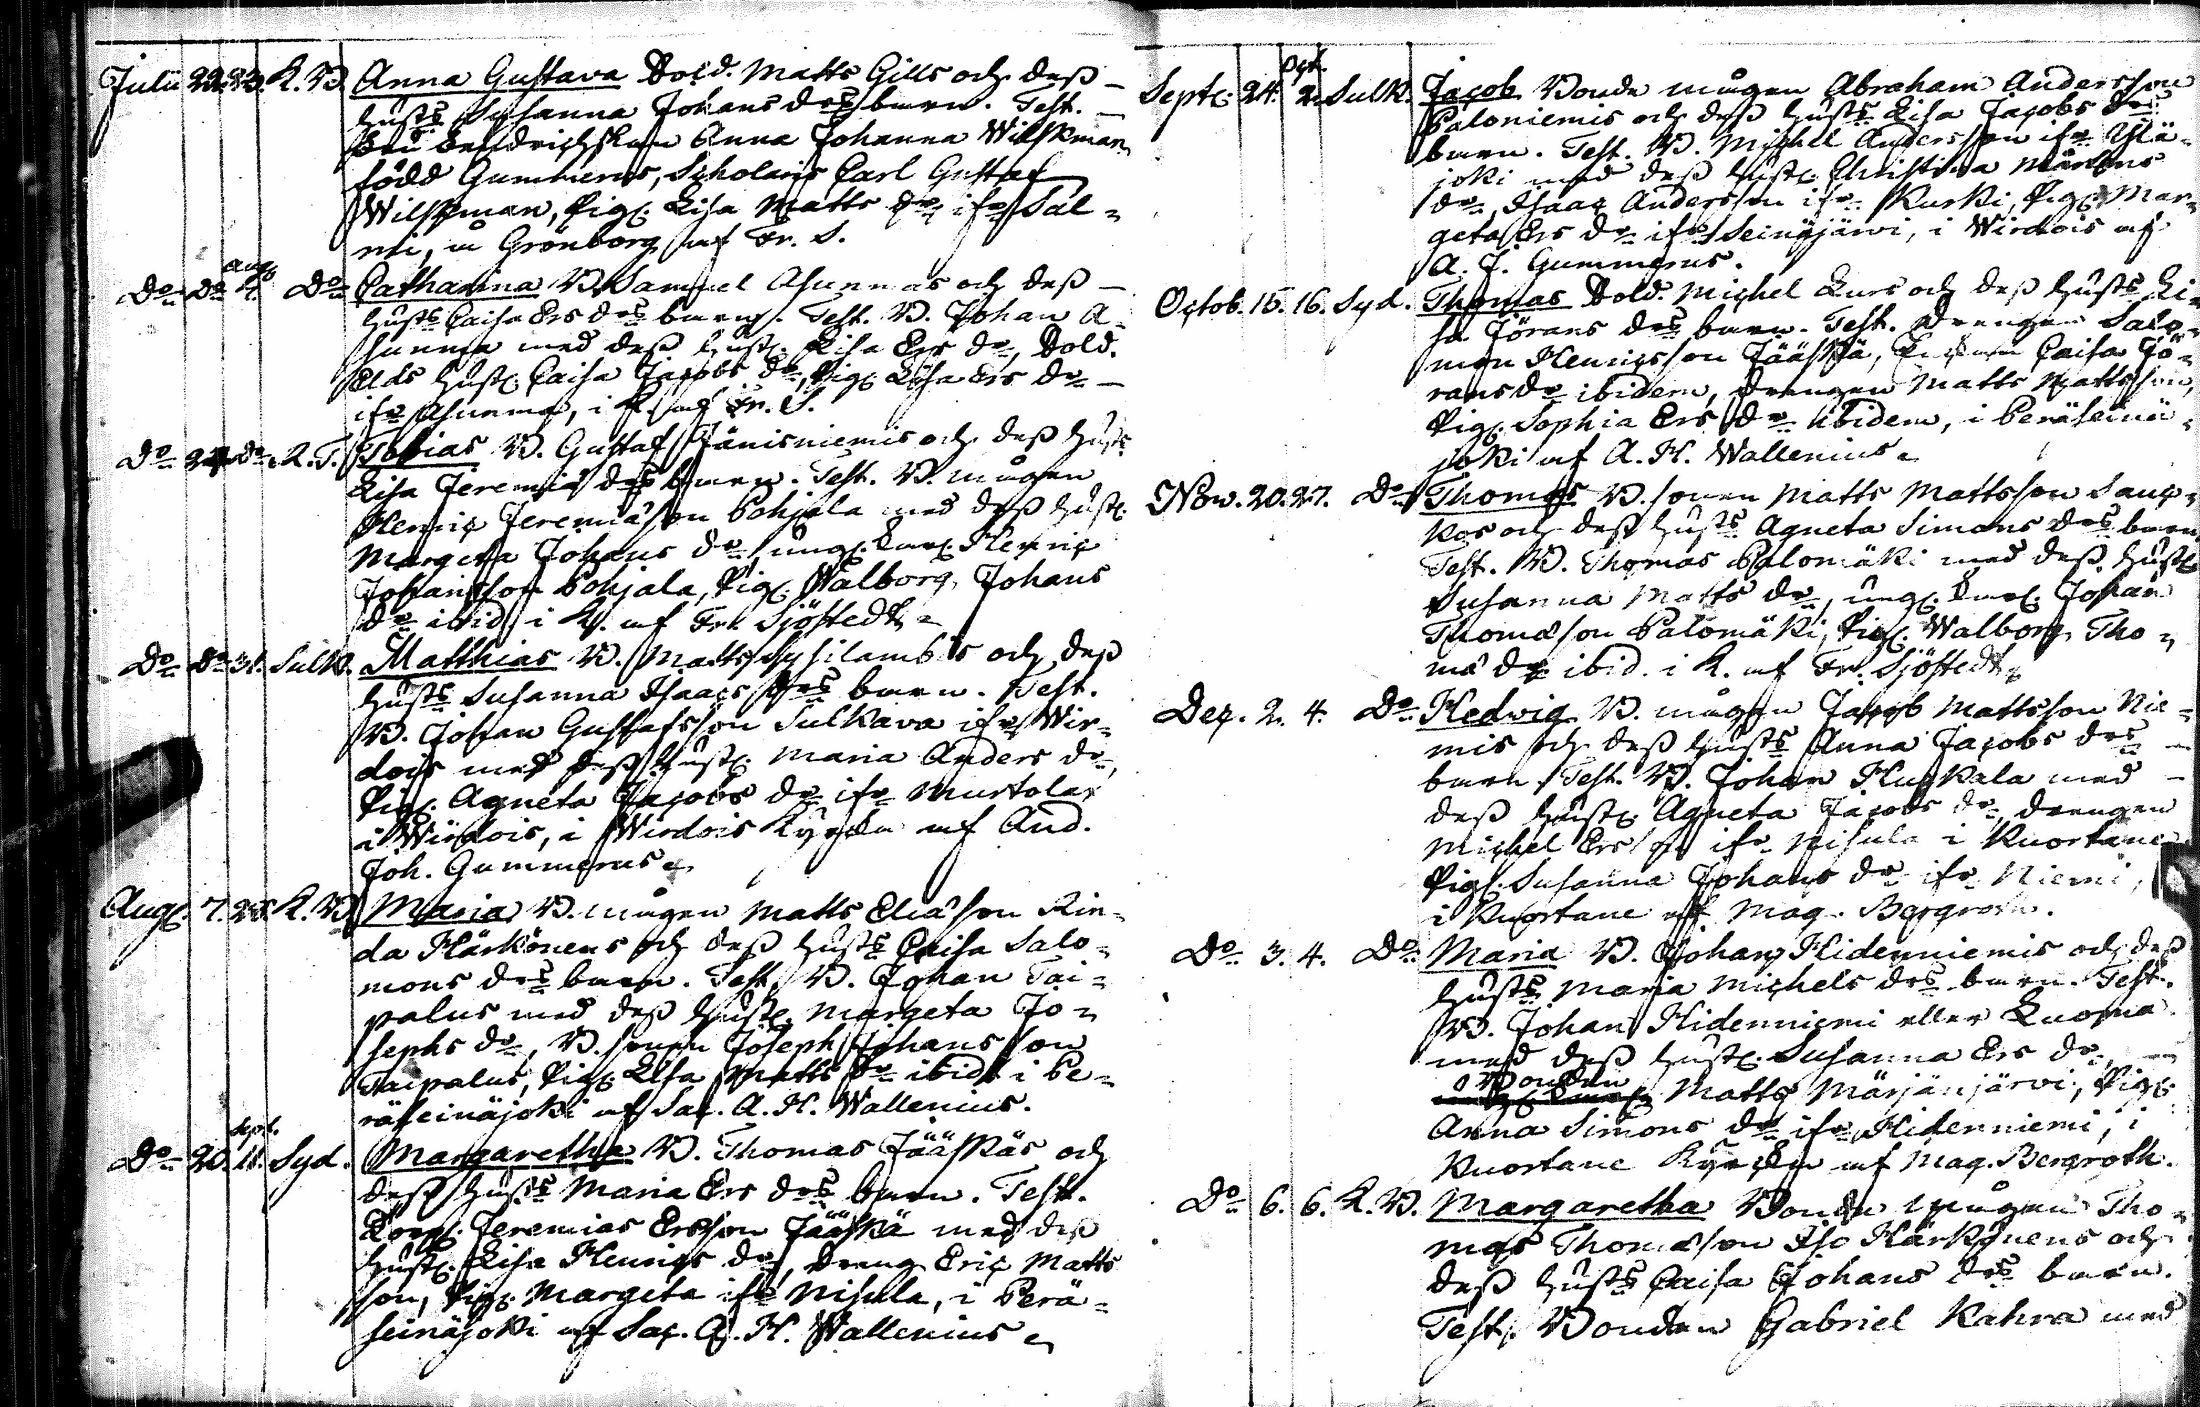 Julii 22. 23. K. B. Anna Gustava Sold. Matts Gills och dess
hust:s Susanna Johans d:rs barn. Test.
Fru Anna Johanna Wilskman
född Gummerus, Scholaris Carl Gustaf
Wilskman, Pig. Lisa Matts d:r ifr. Sal-
mi, Grönborg af Fr. S.
D:o D:o Aug. D:o Catharina B. Samuel Asunmas och dess
hust:s Caisa Ers d:rs barn. Test. B. Johan A-
sunma med dess hust. Lisa Ers d:r, Sold.
Elds hust. Caisa Jacobs d:r, Pig. Lisa Ers d:r
ifr. Asunma, i K. af Fr. S.
D:o 24. D:o K. T. Tobias B. Gustaf Jänisniemis och dess hust:s
Lisa Jeremiæ d:rs barn. Test. B. mågen
Henric Jeremiæson Pohjala med dess hust.
Margeta Johans d:r, ung. karl. Henric
Johansson Pohjala, Pig. Walborg Johans
d:r ibid. i K. af Fr. Sjöstedt.
D:o D:o 31. Sulk. Matthias B. Matts Sysilambis och dess
hust:s Susanna Isaacs d:rs barn. Test.
B. Johan Gustafsson Sulkava ifr. Wir-
dois med dess hust. Maria Anders d:r,
Pig. Agneta Jacobs d:r ifr. Murtolax
i Wirdois, i Wirdois Kyrka af And.
Joh. Gummerus.
Aug. 7. 28. K. B. Maria B. mågen Matts Eliæson Rin-
da Härkönens och dess hust:s Caisa Salo-
mons d:rs barn. Test. B. Johan Tai-
palus med dess hust. Margeta Jo-
sephs d:r, B. sonen Joseph Johansson
Taipalus, Pig. Lisa Matts d:r ibid. i Pe-
räseinäjoki af Sac. A. H. Wallenius.
D:o 20. Sept. 11. Syd. Margaretha B. Thomas Jääskäs och
dess hust:s Maria Ers d:rs barn. Test.
Corp. Jeremias Ersson Jääskä med dess
hust. Lisa Henrics d:r, dreng Eric Matts
son, Pig. Margeta ifr. Nisula, i Perä-
seinäjoki af Sac. A. H. Wallenius.
Sept. 24. Oct. 2. Sulk. Jacob Bonde mågen Abraham Andersson
Paloniemis och dess hust:s Lisa Jacobs d:rs
barn. Test. B. Michel Andersson ifr. Ylä-
joki med dess hust. Christina Mårtens
d:r, Isaac Andersson ifr. Kurki, Pig. Mar-
geta Ers d:r ifr. Seinäjärvi, i Wirdois af
A. J. Gummerus.
Octob. 15. 16. Syd. Thomas Sold. Michel Lurs och dess hust:s Li-
sa Jörans d:rs barn. Test. Drengen Salo-
mon Henricsson Jääskä, Caisa Jö-
rans d:r ibidem, drengen Matts Mattsson,
Pig. Sophia Ers d:r ibidem, i Peräseinä-
joki af A. H. Wallenius.
Nov. 20. 27. D:o Thomas B. sonen Matts Mattsson Sauc-
kos och dess hust:s Agneta Simons d:rs barn
Test. B. Thomas Palomäki med dess hust.
Susanna Matts d:r, ung. karl. Johan
Thomæson Palomäki, Pig. Walborg Tho-
mæ d:r ibid. i K. af Fr. Sjöstedt.
Dec. 2. 4. D:o Hedvig B. mågen Jacob Mattsson Nie-
mis och dess hust:s Anna Jacobs d:rs
barn. Test. B. Johan Huckala med
dess hust. Agneta Jacobs d:r, drengen
Michel Ers son ifr. Nisula i Kuortane
Pig. Susanna Johans d:r ifr. Niemi,
i Kuortane af Mag. Bergroth.
D:o 3. 4. D:o Maria B. Johan Hidenniemis och dess
hust:s Maria Michels d:rs barn. Test.
B. Johan Hidenniemi eller Luoma
med dess hust. Susanna Ers d:r,
Bonden Matts Märjänjärvi, Pig.
Anna Simons d:r ifr. Hidenniemi, i
Kuortane Kyrka af Mag. Bergroth.
D:o 6. 6. K. B. Margaretha Bonde mågen Tho-
mas Thomæson Iso Härkönens och
dess hust:s Caisa Johans d:rs barn.
Test. Bonden Gabriel Kahra med